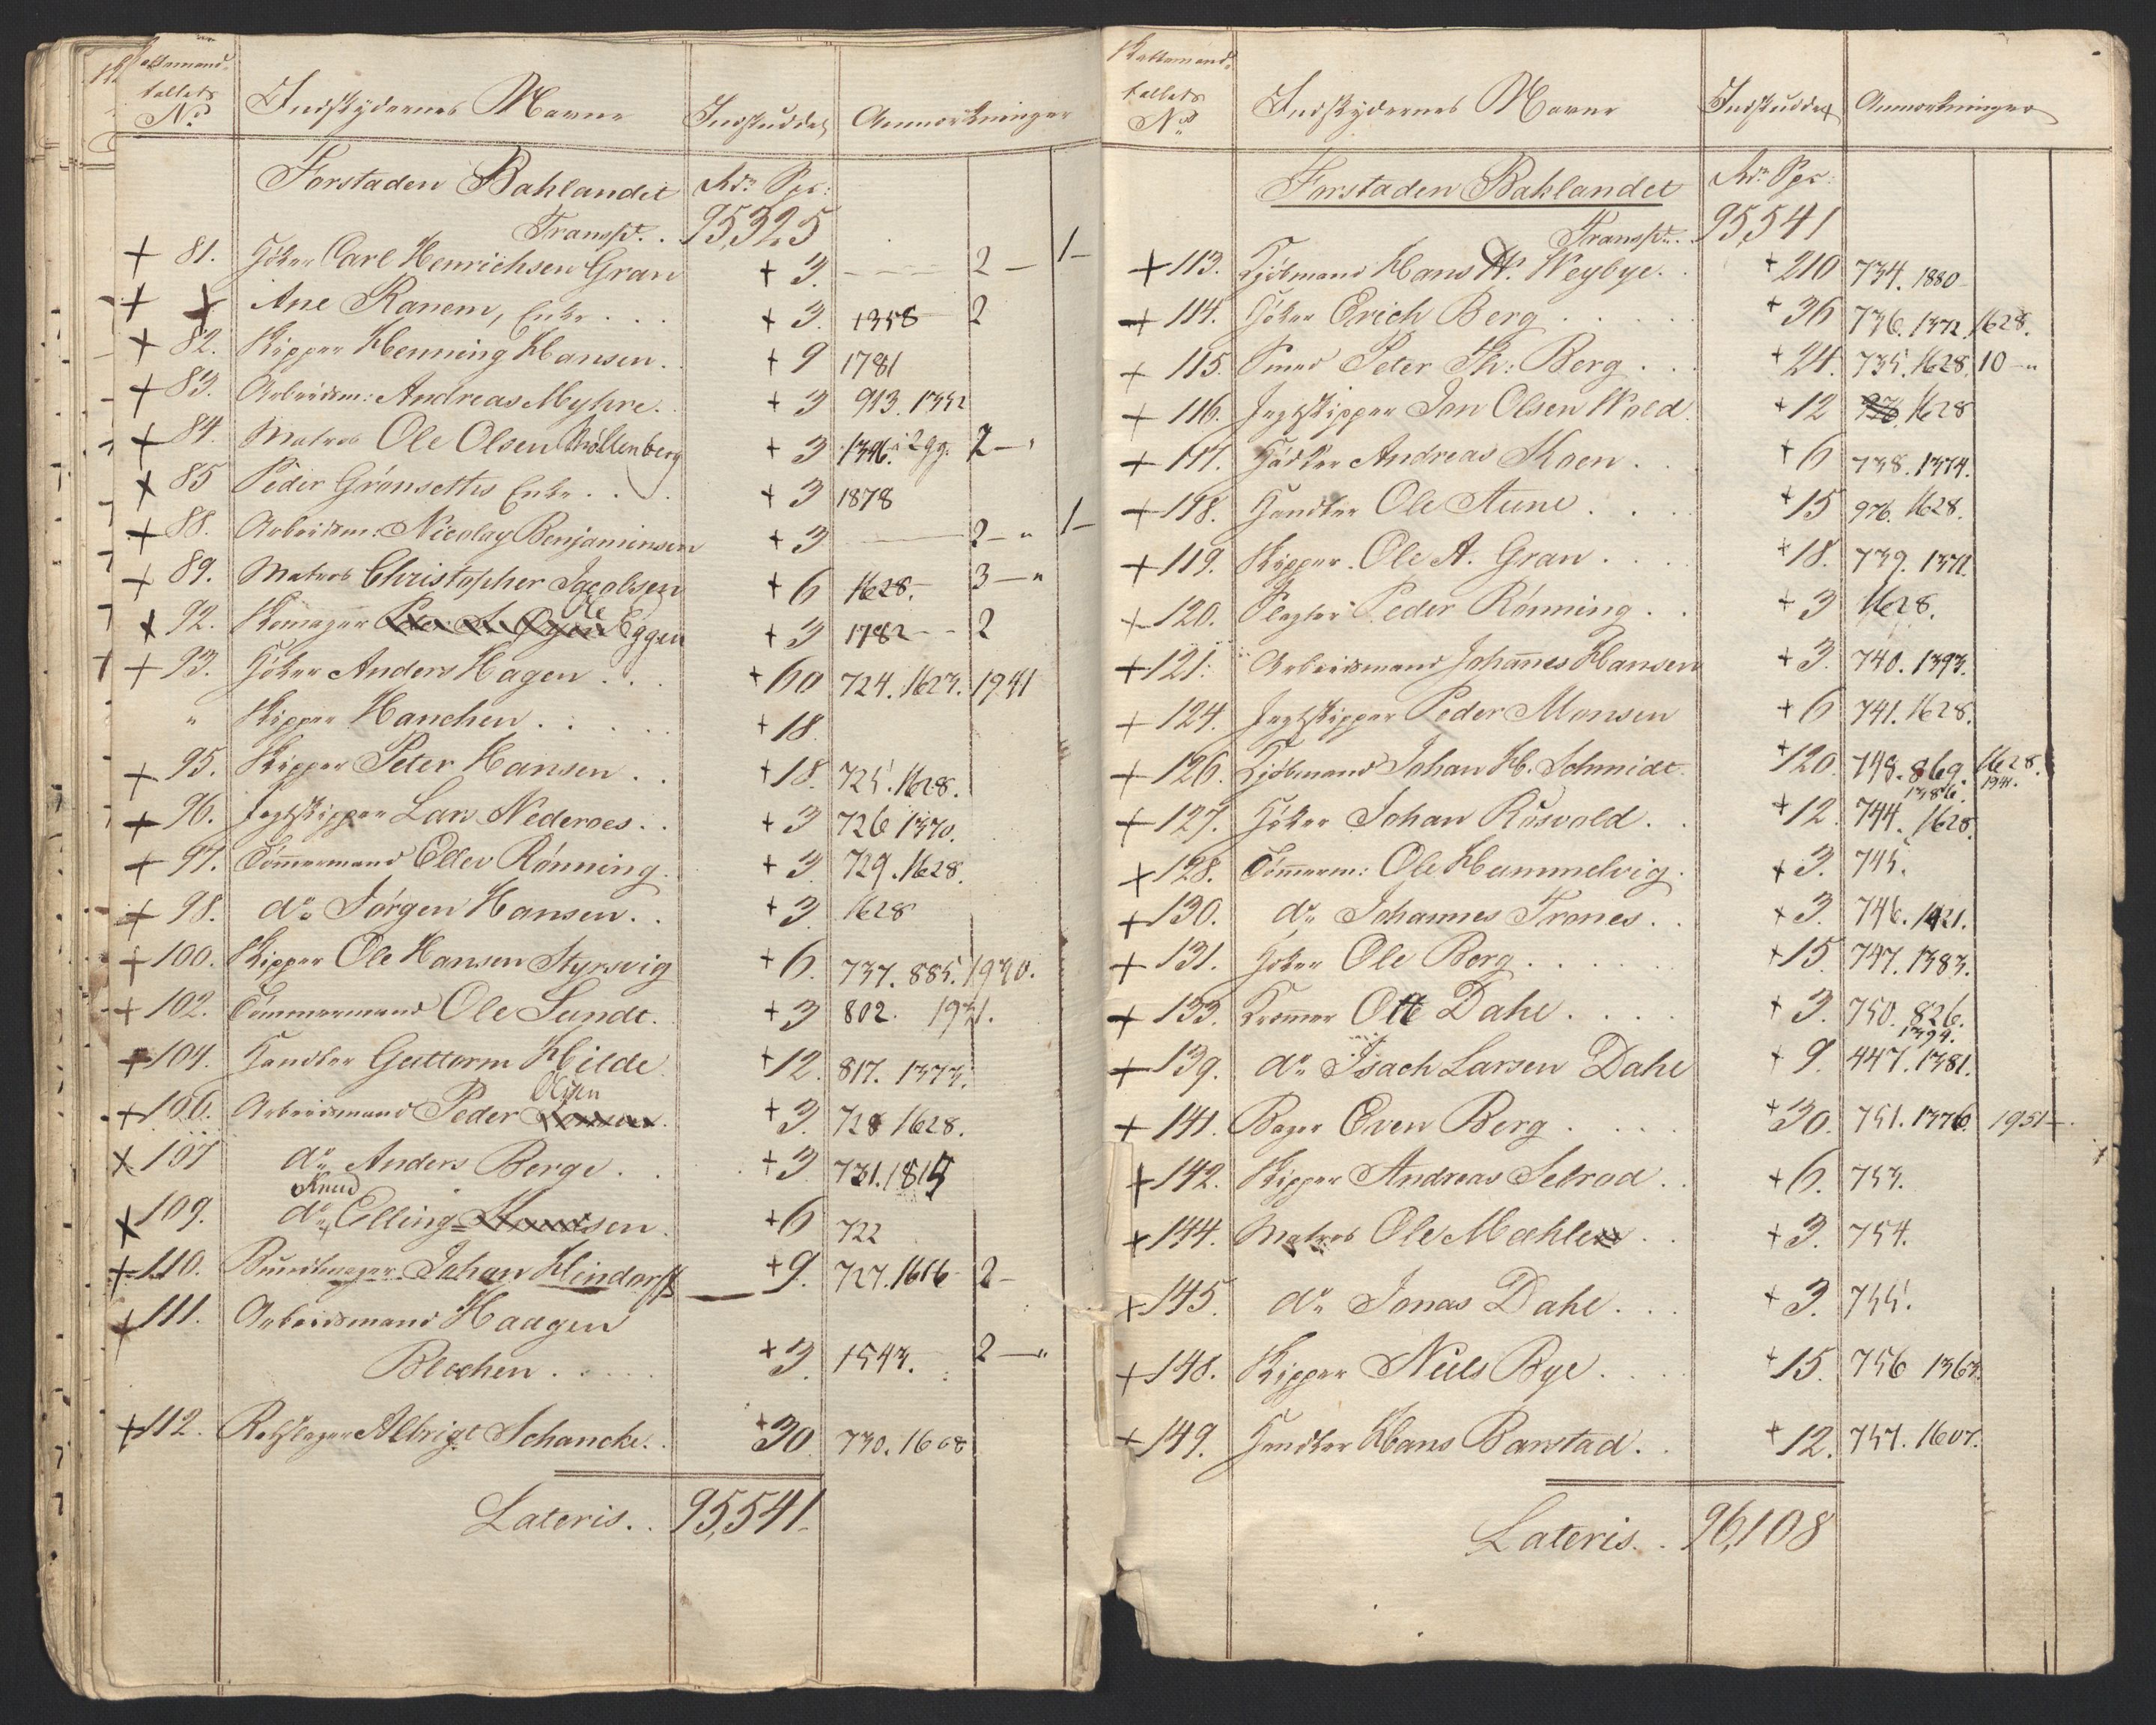 Skattemand-
tallets
No. Indskydernes Navne Indskuddet Anmærkninger
Forstaden Bakland​et Rdr. Spc:
Transpt. . 95,325
+ 81. Høker Carl Henrichsen Gran + 3. 2 — 1 —
+ + Ane Ranem, Enke . . . + 3. 1358 2
+ 82. Skipper Henning Hansen. . + 9 1781
+ 83. Arbeidsm: Andreas Myhre. . + 3 913. 1352
+ 84. Matros Ole Olsen Möllenberg + 3 1396. 1299. 2 — "
+ 85 Peder Grönsettes Enke . . . + 3 1878
+ 88. Arbeidsm: Nicolay Benjaminsen + 3 2 — " 1 —
+ 89. Matros Christopher Jacobsen + 6 1628. — 3 — "
+ 92. Skomager Ole Eggen + 3 1782 — 2
+ 93. Høker Anders Hagen . . . + 60 724. 1623. 1941
" Skipper Hanchen . . . . + 18.
+ 95. Skipper Peter Hansen . . + 18. 725. 1628.
+ 96. Jægtskipper Lars Nederaes. . + 3 726 1370.
+ 97. Tömmermand Ellev Rönning. + 3 729. 1628.
+ 98. do. Jörgen Hansen. . + 3 1628
+ 100. Skipper Ole Hansen Styrsvig + 6. 737. 885. 1930.
+ 102. Tömmermand Ole Sundt. + 3 802. 1931.
+ 104. Handler Guttorm Hilde + 12. 817. 1373.
+ 106. Arbeidsmand Peder Olsen + 3. 728 1628.
+ 107 do. Anders Berge . . + 3 731. 1815
Knud
+ 109. do. Elling sen. + 6 722
+ 110. Buntmager Johan Hindorff + 9. 727. 1616 2 —
+ 111. Arbeidsmand Haagen
Blechen . . . . . + 3. 1543. 2 — "
+ 112. Rebslager Albrigt Schancke. . + 30. 730. 1668
Lateris. . 95,541.
Skattemand-
tallets
No. Indskydernes Navne Indskuddet Anmærkninger
Forstaden Baklandet Rdr. Spc:
Transpt. . 95,541
+ 113. Kjøbmand Hans N. Weybye. . + 210 734. 1880
+ 114. Høker Erich Berg . . . . + 36 736. 1372. 1628.
+ 115. Smed Peter Th: Berg . . . + 24. 735. 1628. 10 — "
+ 116. Jægtskipper Jon Olsen Wold + 12 1628
+ 117. Høker Andreas Moen . . + 6 738. 1374.
+ 118. Handler Ole Aune . . . + 15 976. 1628.
+ 119. Skipper Ole A. Gran . . . . + 18. 739. 1371.
+ 120. Slagter Peder Rönning . . + 3 1628.
+ 121. Arbeidsmand Johannes Hansen + 3. 740. 1393.
+ 124. Jægtskipper Peder Monsen + 6 741. 1628.
+ 126. Kjøbmand Johan H. Schmidt. + 120. 748. 869. 1628.
1386. 1941.
+ 127. Høker Johan Rosvold. . + 12. 744. 1628.
+ 128. Tömmerm: Ole Hummelvig. + 3. 745.
+ 130. do. Johannes Trones. . + 3. 746. 1421.
+ 131. Høker Ole Berg . . . . . + 15. 747. 1383.
+ 133. Kræmmer Ott Dahl . . . . + 3. 750. 826.
1394.
+ 139. do. Isach Larsen Dahl + 9. 447. 1381.
+ 141. Bager Even Berg . . . . + 30. 751. 1376. 1951 —
+ 142. Skipper Andreas Selrod . . + 6. 753.
+ 144. Matros Ole Mæhle . . + 3. 754.
+ 145. do. Jonas Dahl . . . + 3. 755.
+ 148. Skipper Niels Bye . . . . + 15. 756 1363.
+ 149. Handler Hans Barstad. . + 12. 757. 1607.
Lateris. . 96,108